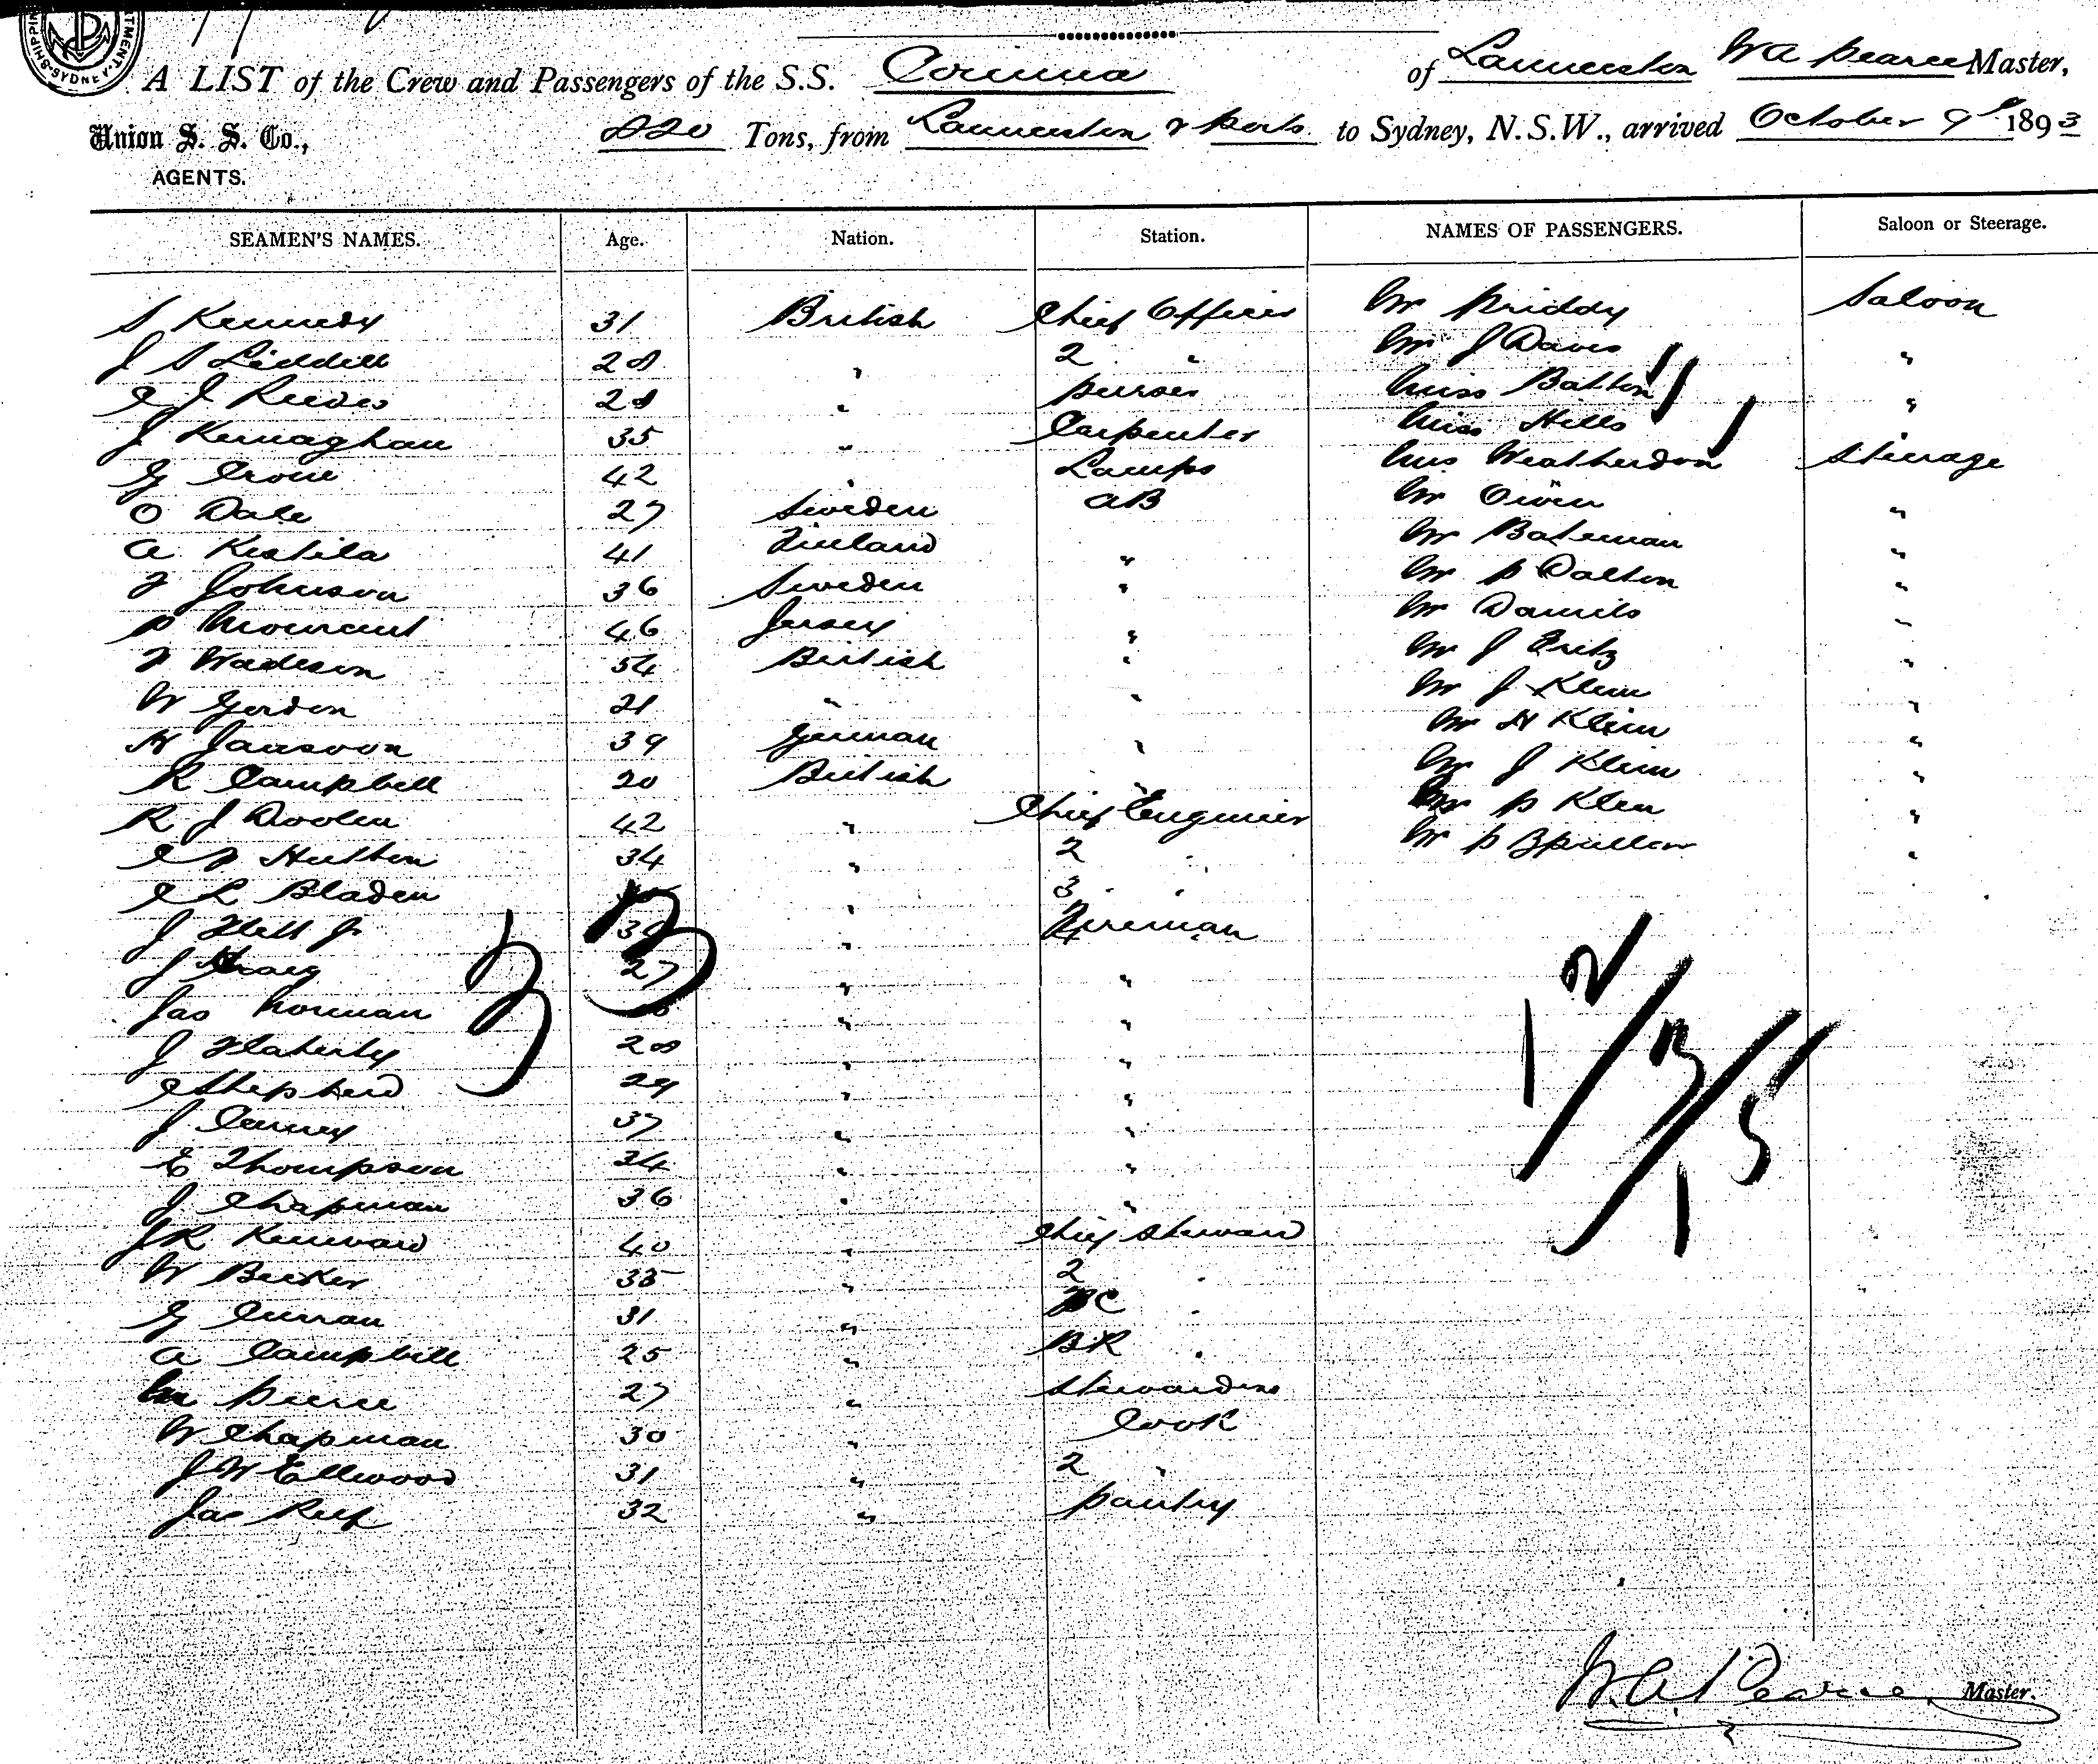 SHIPPING SYDNEY
A LIST of the Crew and Passengers of the S.S. Corinna of Launceston WA Pearce Master,
Union S. S. Co., 820 Tons, from Launceston & ports to Sydney, N.S.W., arrived October 9th 1893
AGENTS.
SEAMEN'S NAMES. Age. Nation. Station. NAMES OF PASSENGERS. Saloon or Steerage.
S Kennedy 31 British Chief Officer Mr Priddy Saloon
J S Liddell 28 " 2 " Mr J Davis "
J Reeves 28 " purser Miss Batton "
J Kernaghan 35 " Carpenter Miss Hills "
G Crone 42 " Lamps Mrs Weatherdon Steerage
O Dale 27 Sweden AB Mr Owen "
A Kestila 41 Finland " Mr Bateman "
F Johnson 36 Sweden " Mr P Dalton "
P Mourant 46 Jersey " Mr Daniels "
F Wadeson 54 British " Mr J Fritz "
W Gordon 21 " " Mr J Klein "
H Jansson 39 German " Mr H Klein "
R Campbell 20 British " Mr J Klein "
R J Doolen 42 " Chief Engineer Mr P Klein "
Hutton 34 " 2 " Mr P "
C L Bladen " 3 "
J " Fireman
J 27 " "
Jas Norman " "
J Flaherty 28 " "
C Shepherd 29 " "
J Carney 37 " "
E Thompson 34 " "
J Chapman 36 " "
J R Kenward 40 " Chief Steward
W Becker 35 " 2 "
G Curran 31 " C "
A Campbell 25 " BR "
M Pierce 27 " Stewardess
W Chapman 30 " Cook
J W Ellwood 31 " 2 "
Jas Relf 32 " pantry
33
12/13/15
1
W.A. Pearce, Master.